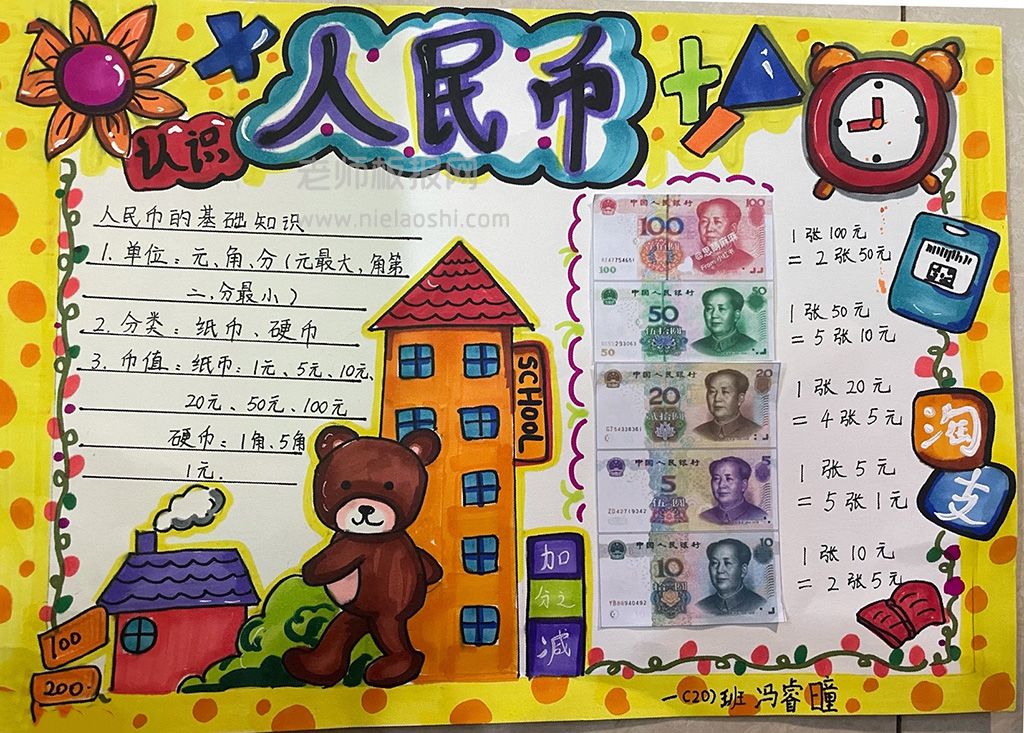 认识
人民币
老师板报网
www.nielaoshi.com
人民币的基础知识
1. 单位：元、角、分（元最大、角第
二、分最小）
2. 分类：纸币、硬币
3. 币值：纸币：1元、5元、10元、
20元、50元、100元
硬币：1角、5角
1元.
SCHOOL
100
200.
加
分之
减
中国人民银行
100
100
100
中国人民银行
50
50
50
中国人民银行
20
20
贰拾圆
中国人民银行
5
5
伍圆
ZD42719347
中国人民银行
10
10
YB88940492
From 小红书
1张100元
= 2张50元
1张50元
= 5张10元
1张20元
= 4张5元
1张5元
= 5张1元
1张10元
= 2张5元
淘
支
一(20)班 冯睿瞳